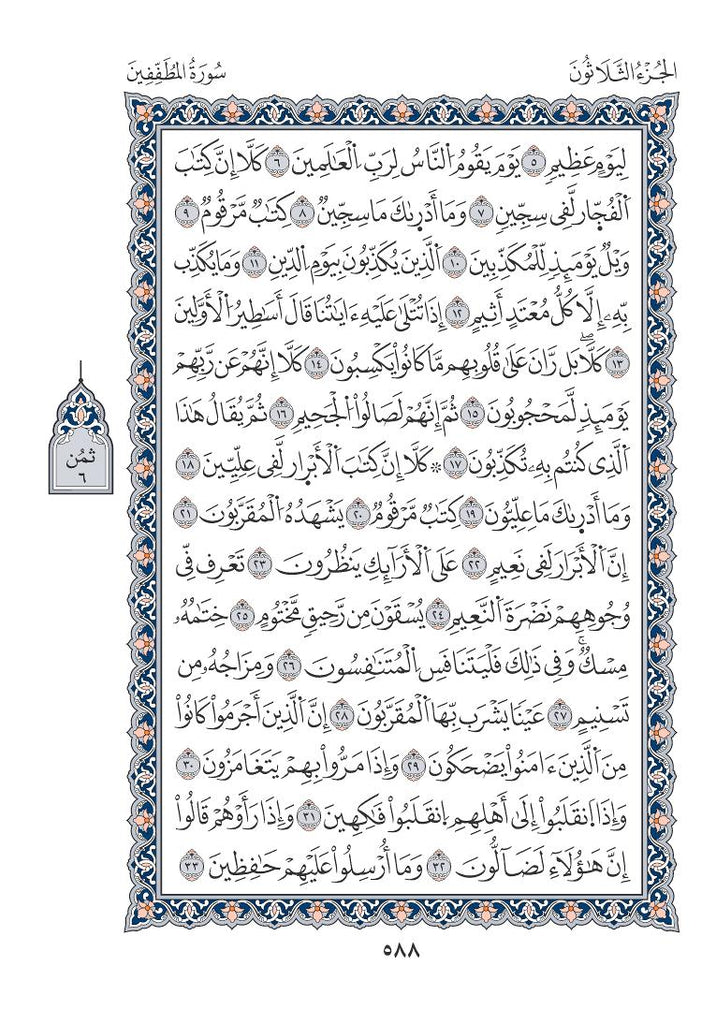 الجُزْءُ الثَّلَاثُونَ
سُورَةُ المُطَفِّفِينَ
لِيَوْمٍ عَظِيمٍ ٥ يَوْمَ يَقُومُ اُلنَّاسُ لِرَبِّ اِلْعَٰلَمِينَ ٦ كَلَّا إِنَّ كِتَٰبَ
اَلْفُجّ۪ارِ لَفِے سِجِّينٍ ٧ وَمَا أَدْر۪ىٰكَ مَا سِجِّينٌ ٨ كِتَٰبٌ مَّرْقُومٌ ٩
وَيْلٌ يَوْمَئِذٍ لِّلْمُكَذِّبِينَ ١٠ اَلَّذِينَ يُكَذِّبُونَ بِيَوْمِ اِلدِّينِ ١١ وَمَا يُكَذِّب
بِّهِۦ إِلَّا كُلُّ مُعْتَدٍ أَثِيمٍ ١٢ إِذَا تُتْلَىٰ عَلَيْهِ ءَايَٰتُنَا قَالَ أَسَٰطِيرُ اُلْأَوَّلِينَ
١٣ كَلَّاۖ بَل رَّانَ عَلَىٰ قُلُوبِهِم مَّا كَانُواْ يَكْسِبُونَ ١٤ كَلَّا إِنَّهُمْ عَن رَّبِّهِمْ
يَوْمَئِذٍ لَّمَحْجُوبُونَ ١٥ ثُمَّ إِنَّهُمْ لَصَالُواْ اُلْجَحِيمِ ١٦ ثُمَّ يُقَالُ هَٰذَا
اَلَّذِے كُنتُم بِهِۦ تُكَذِّبُونَ ١٧ ۞ كَلَّا إِنَّ كِتَٰبَ اَلْأَبْر۪ارِ لَفِے عِلِّيِّينَ ١٨
وَمَا أَدْر۪ىٰكَ مَا عِلِّيُّونَ ١٩ كِتَٰبٌ مَّرْقُومٌ ٢٠ يَشْهَدُهُ اُلْمُقَرَّبُونَ ٢١
إِنَّ اَلْأَبْرَارَ لَفِے نَعِيمٍ ٢٢ عَلَى اَلْأَرَآئِكِ يَنظُرُونَ ٢٣ تَعْرِف فِّے
وُجُوهِهِمْ نَضْرَةَ اَلنَّعِيمِ ٢٤ يُسْقَوْنَ مِن رَّحِيقٍ مَّخْتُومٍ ٢٥ خِتَٰمُهُۥ
مِسْكٌۚ وَفِے ذَٰلِكَ فَلْيَتَنَافَسِ اِلْمُتَنَٰفِسُونَ ٢٦ وَمِزَاجُهُۥ مِن
تَسْنِيمٍ ٢٧ عَيْنًا يَشْرَب بِّهَا اَلْمُقَرَّبُونَ ٢٨ إِنَّ اَلَّذِينَ أَجْرَمُواْ كَانُواْ
مِنَ اَلَّذِينَ ءَامَنُواْ يَضْحَكُونَ ٢٩ وَإِذَا مَرُّواْ بِهِمْ يَتَغَامَزُونَ ٣٠
وَإِذَا اَنقَلَبُواْ إِلَىٰ أَهْلِهِمِ اِنقَلَبُواْ فَٰكِهِينَ ٣١ وَإِذَا رَأَوْهُمْ قَالُواْ
إِنَّ هَٰؤُلَآءِ لَضَآلُّونَ ٣٢ وَمَا أُرْسِلُواْ عَلَيْهِمْ حَٰفِظِينَ ٣٣
ثمُن
٦
٥٨٨